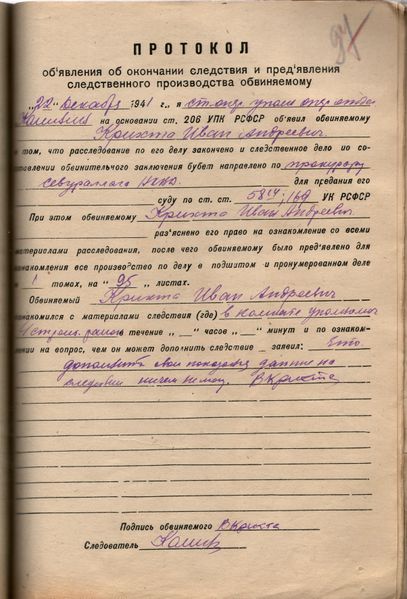 97
ПРОТОКОЛ
об'явления об окончании следствия и пред'явления
следственного производства обвиняемому
„22“ декабря 1941 г., я ст. опер. уполн. опер отдела
на основании ст. 206 УПК РСФСР об'явил обвиняемому
Крихта Иван Андреевич
в том, что расследование по его делу закончено и следственное дело по со-
ставлении обвинительного заключения будет направлено по прокурору
Севураллага НКВД для предания его
суду по ст. ст. 58/14, 169 УК РСФСР
При этом обвиняемому Крихта Иван Андреевич
раз'яснено его право на ознакомление со всеми
материалами расследования, после чего обвиняемому было пред'явлено для
ознакомления все производство по делу в подшитом и пронумерованном деле
в 1 томах, на „95“ листах.
Обвиняемый Крихта Иван Андреевич
ознакомился с материалами следствия (где) в комнате уполномоч
1 строит. района течение „ “ часов „ “ минут и по ознаком-
лении на вопрос, чем он может дополнить следствие заявил: Что
дополнить свои показания данные на
следствии ничем не могу. В Крихта
Подпись обвиняемого В Крихта
Следователь